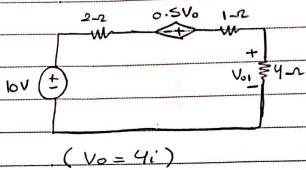 2Ω 0.5Vo 1Ω
+
10V Vo1 4Ω
-
(Vo = 4i)